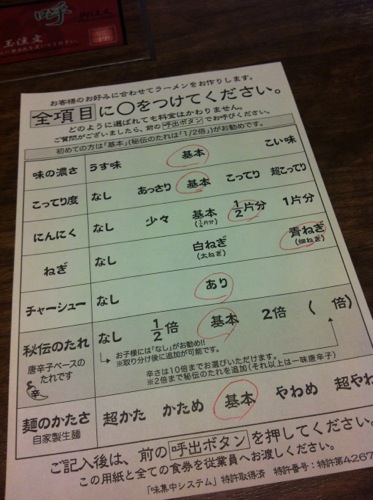 玉注文
お客様のお好みに合わせてラーメンをお作りします。
全項目に○をつけてください。
どのように選ばれても料金はかわりません。
ご質問がございましたら、前の呼出ボタンでお呼びください。
初めての方は「基本」(秘伝のたれは「1/2倍」)がお勧めです。
味の濃さ うす味 基本 こい味
こってり度 なし あっさり 基本 こってり 超こってり
にんにく なし 少々 基本(1/4片分) 1/2片分 1片分
ねぎ なし 白ねぎ(太ねぎ) 青ねぎ(細ねぎ)
チャーシュー なし あり
秘伝のたれ なし 1/2倍 基本 2倍 ( 倍)
唐辛子ベースの
たれです
辛
お子様には「なし」がお勧め!!
※取り分け後に追加が可能です。
辛さは10倍までお選びいただけます。
※2倍まで秘伝のたれを追加(それ以上は一味唐辛子)
麺のかたさ 超かた かため 基本 やわめ 超やわ
自家製生麺
ご記入後は、前の呼出ボタンを押してください。
この用紙と全ての食券を従業員へお渡しください。
「味集中システム」特許取得済 特許番号:特許第4267